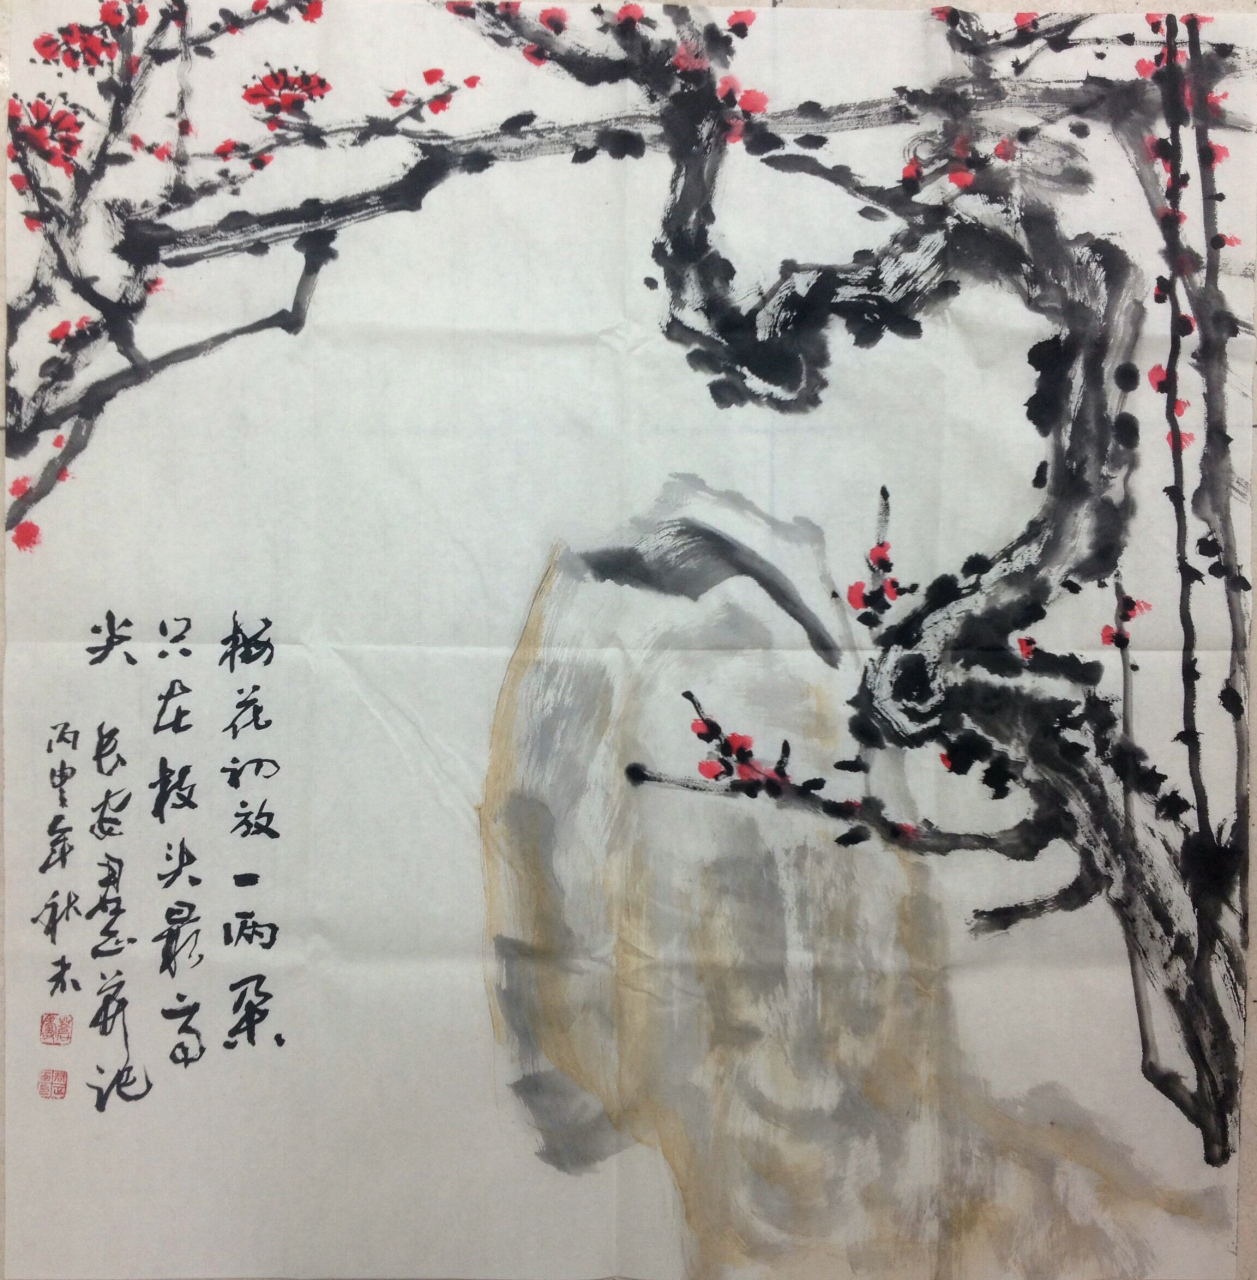 梅花初放一两朵
只在枝头最高
尖 长安君山并记
丙申年秋末